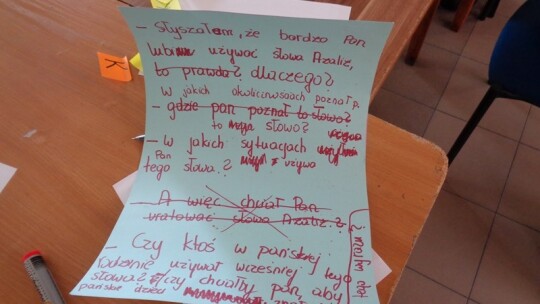 K
- słyszałem, że bardzo Pan
lubi używać słowa Azaliż,
to prawda? dlaczego?
w jakich okolicznościach poznał p.
- gdzie pan poznał to słowo?
to słowo?
- w jakich sytuacjach
Pan
tego słowa? używa
A więc chciał Pan
uratować słowo Azaliż?
- Czy ktoś w pańskiej
rodzinie używał wcześniej tego
słowa? czy chciałby pan, aby
pańskie dzieci